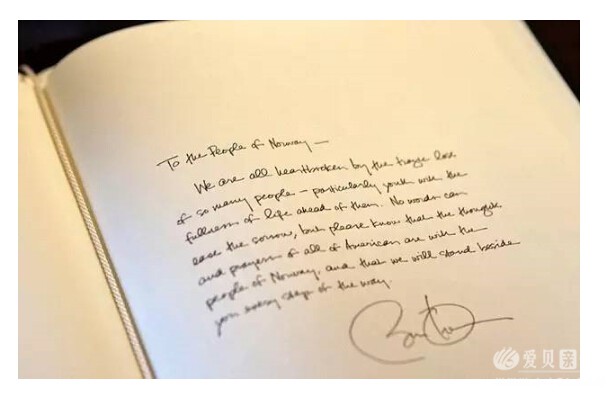 To the People of Norway —
We are all heartbroken by the tragic loss
of so many people – particularly youth with the
fullness of life ahead of them. No words can
ease the sorrow, but please know that the thoughts
and prayers of all of American are with the
people of Norway, and that we will stand beside
you every step of the way.
爱贝亲